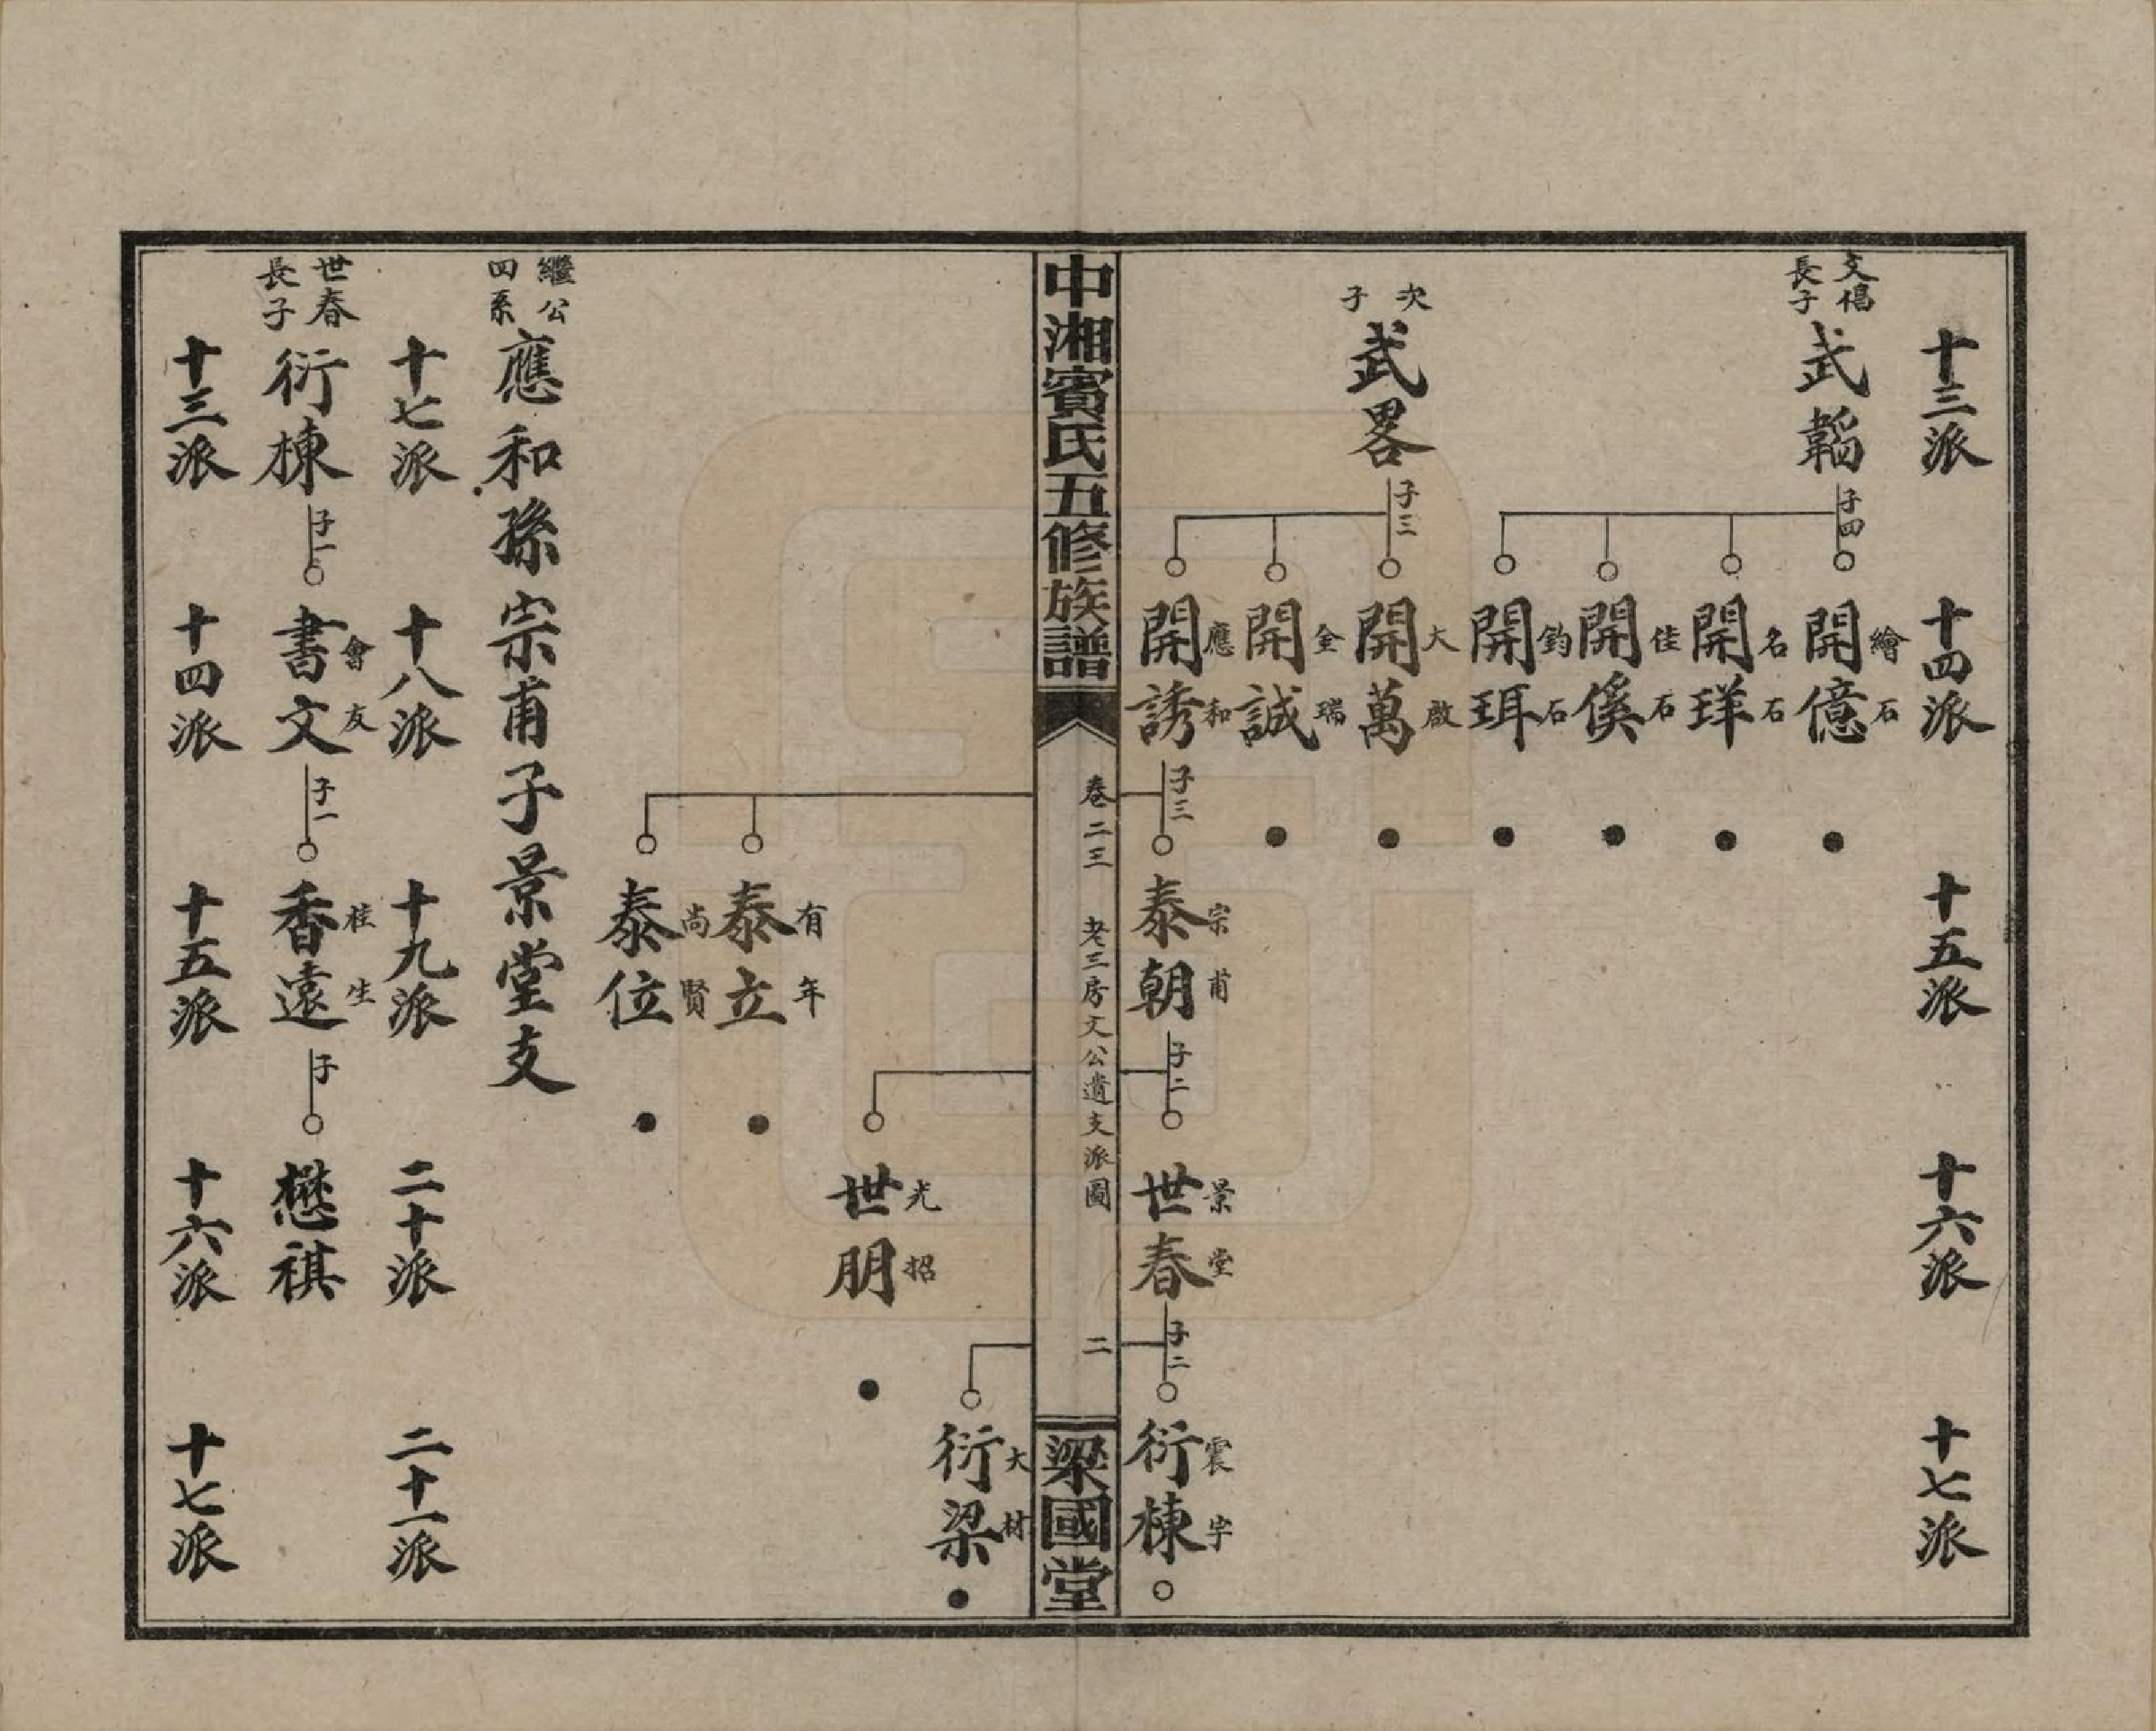 十三派
十四派
十五派
十六派
十七派
文偈長子
武韜
子四
開億 繪石
開珜 名石
開傒 佳石
開珥 鈞石
次子
武畧
子三
開萬 大啟
開誠 金瑞
開誘 應和
子三
泰朝 宗甫
子二
世春 景堂
子二
衍棟 震宇
中湘賓氏五修族譜
卷二三
老三房文公遺支派圖
二
梁國堂
衍梁 大材
世朋 光招
泰立 有年
泰位 尚賢
繼公四系
應和孫宗甫子景堂支
十七派
十八派
十九派
二十派
二十一派
世春長子
衍棟
子一
書文 會友
子一
香遠 桂生
子
懋祺
十三派
十四派
十五派
十六派
十七派